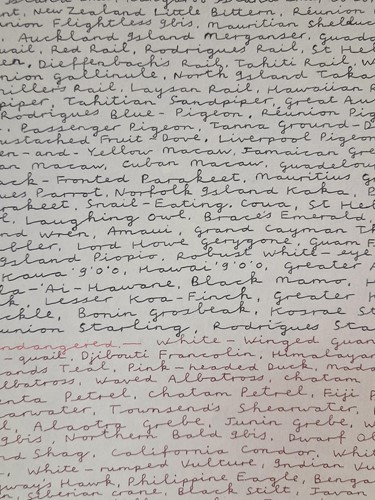 nt, New Zealand Little Bittern, Réunion
union Flightless Ibis, Mauritian Shelduck
Auckland Island Merganser, Guado
uail, Red Rail, Rodrigues Rail, St Hel
en, Dieffenbach's Rail, Tahiti Rail, W
nion Gallinule, North Island Taka
millers Rail, Laysan Rail, Hawaiian R
piper, Tahitian Sandpiper, Great Au
Rodrigues Blue-Pigeon, Réunion Pig
Passenger Pigeon, Tanna Ground-D
ustached Fruit Dove, Liverpool Pigeon
en-and-Yellow Macaw, Jamaican Gre
an Macaw, Cuban Macaw, Guadelou
ack-Fronted Parakeet, Mauritius G
ues Parrot, Norfolk Island Kaka, P
akeet, Snail-Eating Coua, St Hel
l, Laughing Owl, Brace's Emerald,
nd Wren, Amaui, Grand Cayman Th
bler, Lord Howe Gerygone, Guam F
Island Piopio, Robust White-eye
Kaua'i 'O'o, Hawai'i 'O'o, Greater A
la-'Ai-Hawane, Black Mamo, H
k, Lesser Koa-Finch, Greater K
ckle, Bonin Grosbeak, Kosrae St
union Starling, Rodrigues Sta
ndangered:- White-Winged Guan
-quail, Djibouti Francolin, Himalayan
ands Teal, Pink-headed Duck, Mada
lbatross, Waved Albatross, Chatam
enta Petrel, Chatam Petrel, Fiji P
earwater, Townsend's Shearwater,
l, Alaotra Grebe, Junin Grebe, W
Ibis, Northern Bald Ibis, Dwarf Ol
nd Shag, California Condor, Whit
White-rumped Vulture, Indian Vu
gway's Hawk, Philippine Eagle, Benga
n, Siberian Crane, Black Stilt, Javan